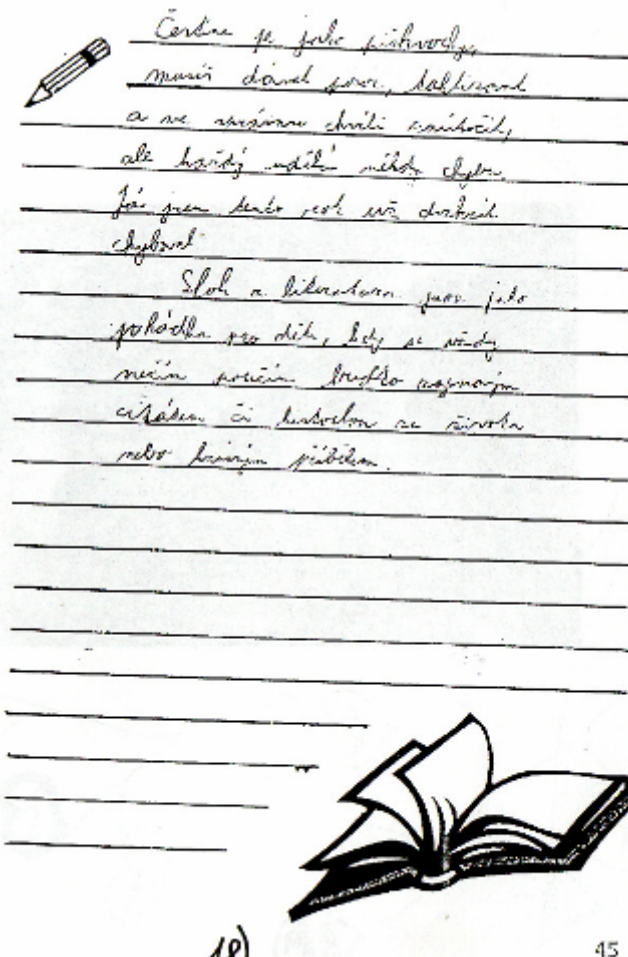 Čeština je jako piškvorky,
musíš dávat pozor, taktizovat
a ve správnou chvíli zaútočit,
ale každý udělá někdy chybu.
Já jsem tento rok už dvakrát
chyboval.
Sloh a literatura jsou jako
pohádka pro děti, kdy se vždy
něčím poučím krátkým
citátem či ze života
nebo krásným příběhem.
18)
45